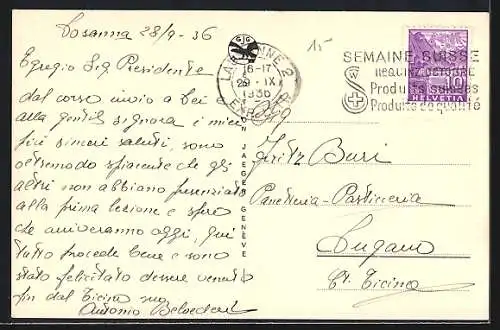 Losanna 28/9 - 36
Egregio Sig Presidente
dal corso invio a Lei e
alla gentil signora i miei
più sinceri saluti, sono
oltremodo spiacente che gli
altri non abbiano presenziato
alla prima lezione e spero
che arriveranno oggi, qui
tutto procede bene e sono
stato felicitato d'essere venuto
fin dal Ticino
Antonio Belvederi
15
LAUSANNE 2
16-17
29.IX
1936
SEMAINE SUISSE
OCTOBRE
Produits suisses
Produits de qualité
10
HELVETIA
JAEGER GENÈVE
Sig
Fritz Buri
Panetteria - Pasticceria
Lugano
Ct. Ticino